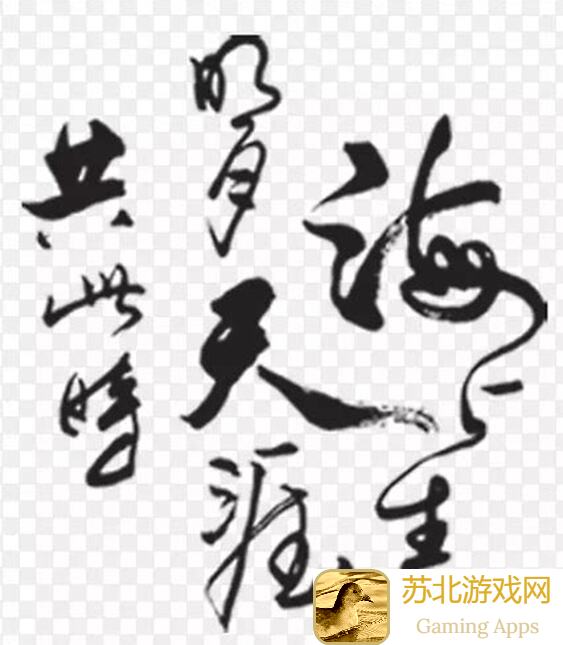 海上生
明月天涯
共此時
苏北游戏网
Gaming Apps